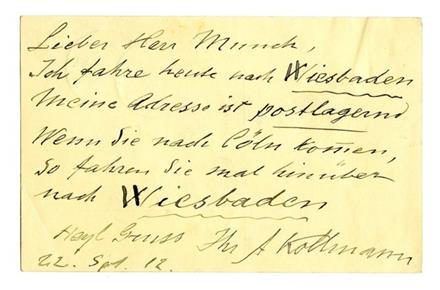 Lieber Herr Munch,
Ich fahre heute nach Wiesbaden
Meine Adresse ist postlagernd
Wenn Sie nach Cöln kom̅en,
so fahren Sie mal hinüber
nach Wiesbaden
Herzl Gruss Ihr A Kollmann
22. Spt. 12.